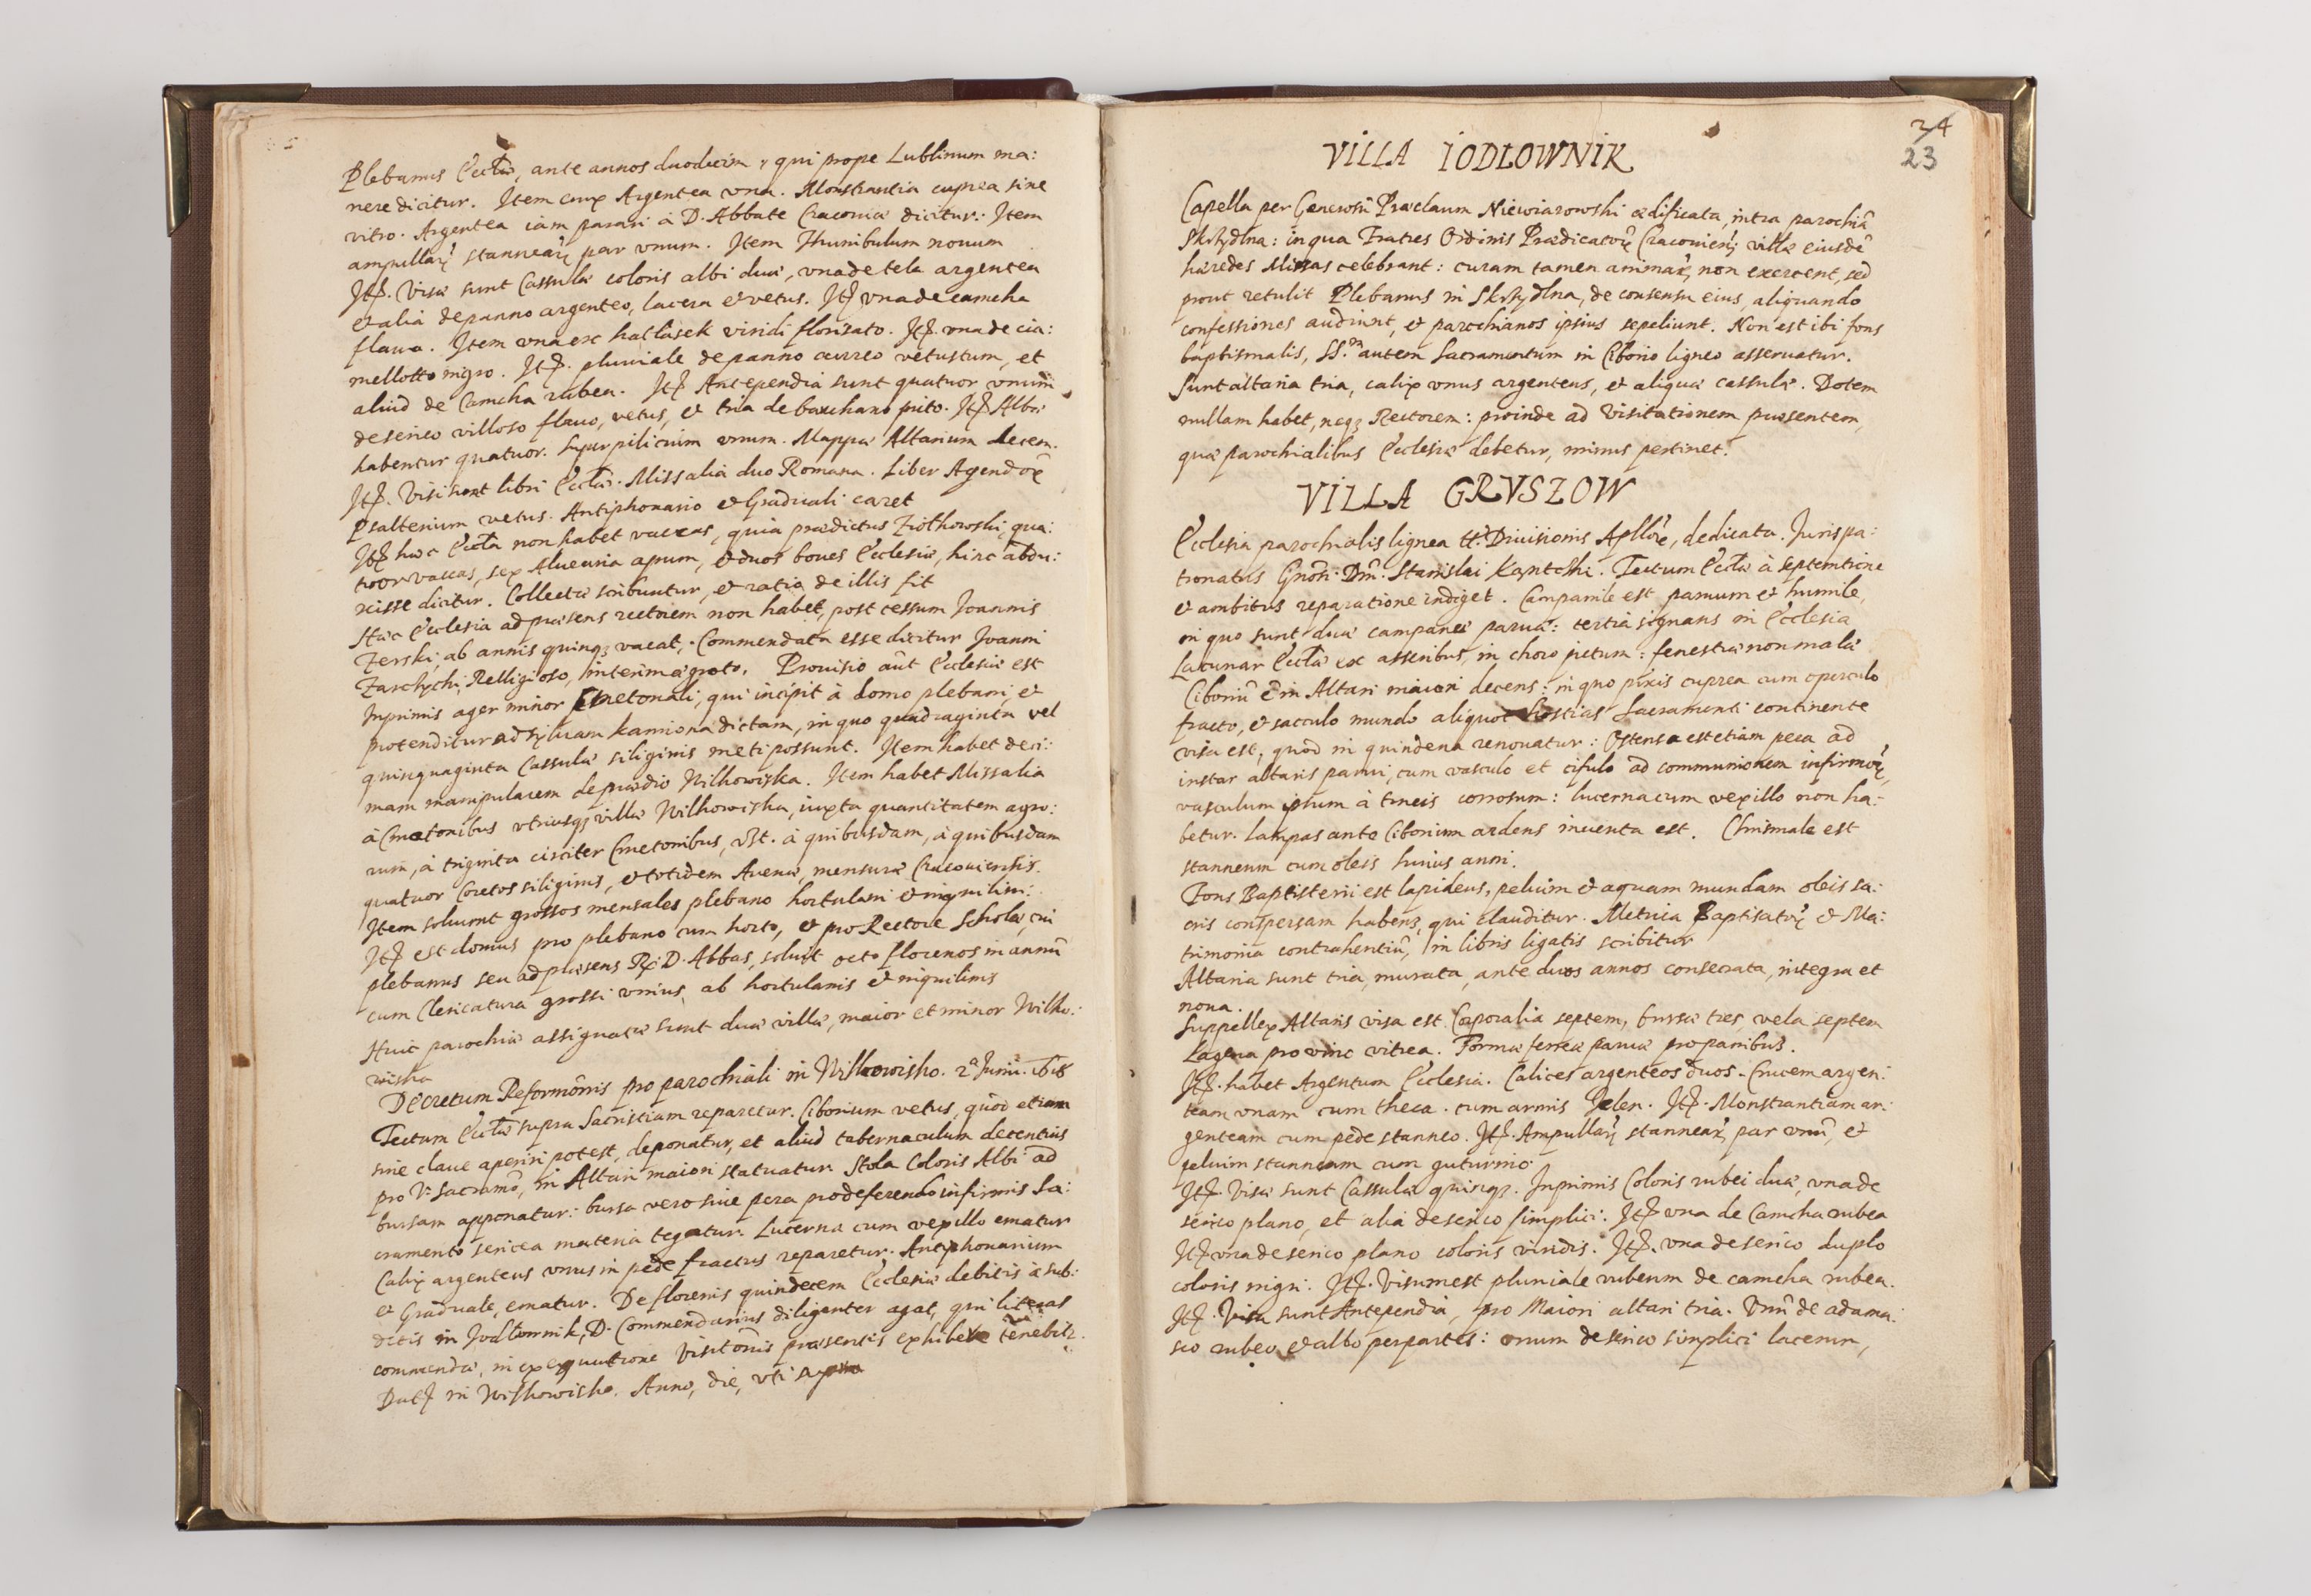 Plebanus Ecclã, ante annos duodecim, qui prope Lublinum ma:
nere dicitur. Item crux Argentea vna. Monstrantia cuprea sine
vitro. Argentea iam parari à D. Abbate Cracoviæ dicitur. Item
ampullarũ stannearũ par vnum. Item Thuribulum nouum
Itẽ. Visæ sunt Cassulæ coloris albi duæ, vna de tela argentea
et alia de panno argenteo, lacera et vetus. Itẽ vna de camcha
flaua. Item vna ex hatlasek viridi florisato. Itẽ. vna de cia:
mellotto nigro. Itẽ. pluuiale de panno aureo vetustum, et
aliud de Camcha rubea. Itẽ Antependia sunt quatuor, vnum
de serico villoso flauo, vetus, et tria de bauchano picto. Itẽ Albæ
habentur quatuor. Superpilicium vnum. Mappæ Altarium decem.
Itẽ. Visi sunt libri Ecclæ. Missalia duo Romana. Liber Agendorũ
Psalterium vetus. Antiphonario et Graduali caret
Itẽ hæc Eccla non habet vaccas, quia prædictus Ziołkowski, qua:
tuor vaccas, sex Aluearia apum, et duos boues Ecclesiæ, hinc abdu:
xisse dicitur. Collectæ scribuntur, et ratio de illis fit
Hæc Ecclesia ad præsens rectorem non habet, post cessum Joannis
Zerski, ab annis quinqȝ vacat, Commendata esse dicitur Joanni
Zarchychi, Relligioso, interim ægroto. Prouisio aũt Ecclesiæ est
Inprimis ager minor Cmetonali, qui incipit à domo plebani, et
protenditur ad syluam kamiona dictam, in quo quadraginta vel
quinquaginta Cassulæ siliginis meti possunt. Item habet deci:
mam manipularem de prædio Wilkowiska. Item habet Missalia
à Cmetonibus vtriusqȝ villæ Wilkowiska, iuxta quantitatem agro:
rum, à triginta circiter Cmetonibus, vʒt. à quibusdam, à quibusdam
quatuor Coretos siliginis, et totidem Auenæ, mensuræ Cracouiensis.
Item soluunt grossos mensales plebano hortulani et inquilini.
Itẽ est domus pro plebano cum horto, et pro Rectore Scholæ, cui
plebanus seu ad præsens Rx̃ D. Abbas, soluit octo florenos in annũ
cum Clericatura grossi vnius, ab hortulanis et inquilinis
Huic parochiæ assignatæ sunt duæ villæ, maior et minor Wilko:
wiska
Decretum Reformõnis pro parochiali in Wilkowisko. 2ª Junii. 1618
Tectum Ecclæ supra Sacristiam reparetur. Ciborium vetus, quod etiam
sine claue aperiri potest, deponatur, et aliud tabernaculum decentius
pro V. Sacramõ, in Altari maiori statuatur. Stola Coloris Albi ad
bursam apponatur: bursa vero siue pera pro deferendo infirmis Sa:
cramento sericea materia tegatur. Lucerna cum vexillo ematur
Calix argenteus vnus in pede fractus reparetur. Antiphonarium
et Graduale, ematur. De florenis quindecem Ecclesiæ debitis à sub:
ditis in Jodłownik, D. Commendarius diligenter agat, qui literas
commendæ, in exequutione Visitõnis præsentis exhibere tenebitr.
Datẽ in Wilkowisko. Anno, die, vti supra
24
23
VILLA IODŁOWNIK
Capella per Generosũ Præclaum Niewiarowski ædificata, intra parochiã
Skrzydlna: in qua Fratres Ordinis Prædicatorũ Cracouieñ, villæ eiusdẽ
hæredes Missas celebrant: curam tamen animarũ non exercent, sed
prout retulit Plebanus in Skrzydlna, de consensu eius, aliquando
confessiones audiunt, et parochianos ipsius sepeliunt. Non est ibi fons
baptismalis, SS.m autem Sacramentum in Ciborio ligneo asseruatur.
Sunt altaria tria, calix vnus argenteus, et aliquæ cassulæ. Dotem
nullam habet, neqȝ Rectorem: proinde ad Visitationem præsentem,
quæ parochialibus Ecclesiis debetur, minus pertinet.
VILLA GRVSZOW
Ecclesia parochialis lignea tt. Diuisionis Apl̃lorũ, dedicata. Juris pa:
tronatus Gñosi. Dñi. Stanislai Kęptoski. Tectum Ecclæ à Septentrione
et ambitus reparatione indiget. Campanile est paruum et humile,
in quo sunt duæ campanæ paruæ: tertia signans in Ecclesia
Lacunar Ecclæ ex asseribus, in choro pictum: fenestræ non malæ
Ciboriũ ẽ in Altari maiori decens: in quo pixis cuprea cum operculo
fracto, et sacculo mundo aliquot Hostias Sacramenti continente
visa est, quod in quindena renouatur: Ostensa est etiam pera ad
instar altaris parui, cum vasculo et cifulo ad communionem infirmorũ,
vasculum ipsum à tineis corrosum: lucerna cum vexillo non ha:
betur. Lampas ante Ciborium ardens inuenta est. Chrismale est
stanneum cum oleis huius anni.
Fons Baptisterii est lapideus, peluim et aquam mundam oleis sa:
cris conspersam habens, qui clauditur. Metrica Baptisatorũ et Ma:
trimonia contrahentiũ, in libris ligatis scribitur
Altaria sunt tria, murata, ante duos annos consecrata, integra et
noua.
Suppellex Altaris visa est. Corporalia septem, bursæ tres, vela septem
Lagena pro vino vitrea. Forma ferrea parua pro panibus.
Itẽ. habet Argentum Ecclesia. Calices argenteos duos. Crucem argen:
team vnam cum theca. cum armis Jelen. Itẽ. Monstrantiam ar:
genteam cum pede stanneo. Itẽ. Ampullarũ stannearũ par vnũ, et
peluim stanneam cum guturnio
Itẽ. Visæ sunt Cassulæ quinqȝ. Inprimis Coloris rubei duæ, vna de
serico plano, et alia de serico simplici. Itẽ vna de Camcha rubea
Itẽ vna de serico plano coloris viridis. Itẽ. vna de serico duplo
coloris nigri. Itẽ. Visum est pluuiale rubeum de camcha rubea.
Itẽ. Visa sunt Antependia, pro Maiori altari tria. Vnũ de adama:
sco rubeo et albo per partes: vnum de serico simplici lacerum,